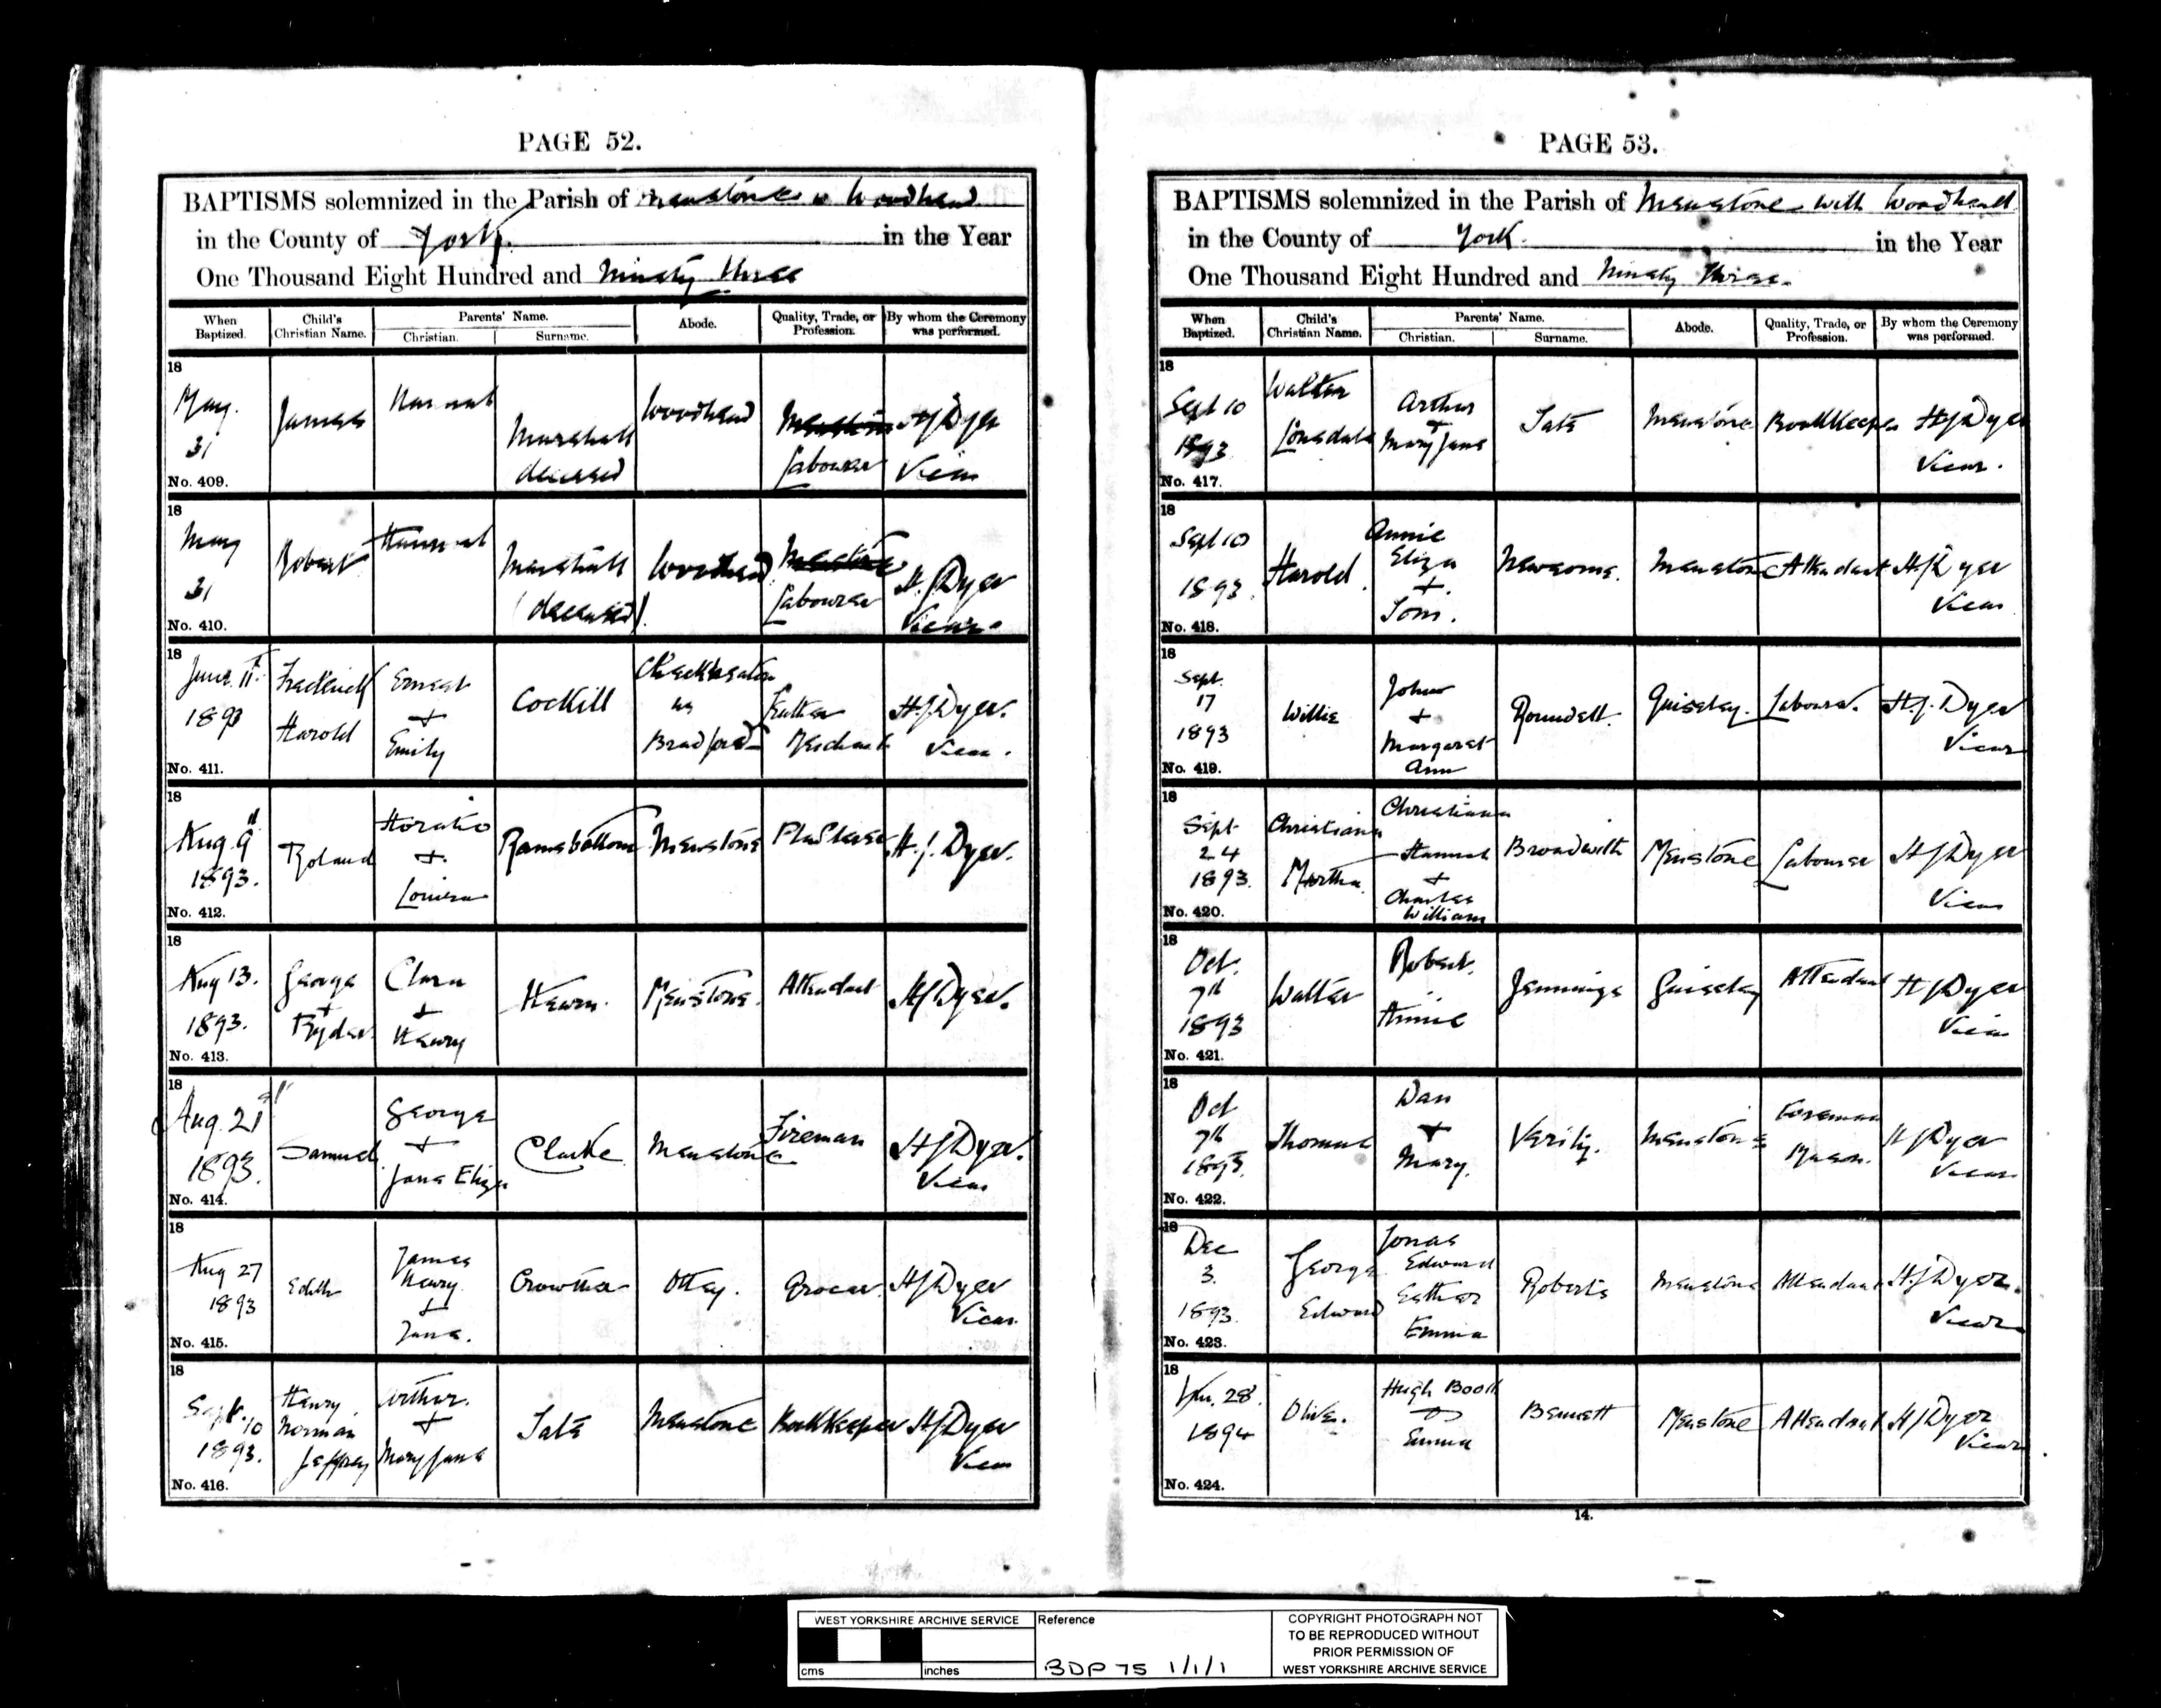 PAGE 52.
BAPTISMS solemnized in the Parish of Menstone w Woodhead
in the County of York. in the Year
One Thousand Eight Hundred and Ninety three
When Baptized. Child's Christian Name. Parents' Name. Christian. Surname. Abode. Quality, Trade, or Profession. By whom the Ceremony was performed.
18 May. 31 No. 409. James Hannah Marshall deceased Woodhead Labourer H J Dyer Vicar
18 May 31 No. 410. Robert Hannah Marshall (deceased). Woodhead Labourer H. J Dyer Vicar.
18 June 11th 1893 No. 411. Fredrick Harold Ernest + Emily Cockill Cleckheaton nr Bradford Leather Merchant H. J. Dyer. Vicar.
18 Aug. 9th 1893. No. 412. Roland Horatio +. Louisa Ramsbottom Menstone Plasterer H. J. Dyer.
18 Aug 13. 1893. No. 413. George + Ryder. Clara + Henry Hearn. Menstone. Attendant H J Dyer.
18 Aug. 21st 1893. No. 414. Samuel George + Jane Eliza Clarke Menstone Fireman H J Dyer. Vicar
18 Aug 27 1893 No. 415. Edith James Henry + Jane. Crowther Otley. Grocer. H J Dyer Vicar.
18 Sept. 10 1893. No. 416. Henry Norman Jeffrey Arthur. + Mary Jane Tate Menstone Bookkeeper H J Dyer Vicar
PAGE 53.
BAPTISMS solemnized in the Parish of Menstone with Woodhead
in the County of York. in the Year
One Thousand Eight Hundred and Ninety three.
When Baptized. Child's Christian Name. Parents' Name. Christian. Surname. Abode. Quality, Trade, or Profession. By whom the Ceremony was performed.
18 Sept 10 1893 No. 417. Walter Lonsdale Arthur + Mary Jane Tate Menstone Bookkeeper H J Dyer Vicar.
18 Sept 10 1893 No. 418. Harold. Annie Eliza +. Tom. Newsome. Menstone Attendant H J Dyer Vicar
18 Sept. 17 1893 No. 419. Willie John + Margaret Ann Roundell. Guiseley. Labourer. H. J. Dyer Vicar
18 Sept 24 1893. No. 420. Christiana Martha Christiana Hannah + Charles William Broadwith Menstone Labourer H J Dyer Vicar
18 Oct. 7th 1893 No. 421. Walter Robert. Annie Jennings Guiseley Attendant H J Dyer Vicar
18 Oct 7th 1893. No. 422. Thomas Dan + Mary. Verity. Menstone Foreman Mason. H J Dyer Vicar
18 Dec 3. 1893. No. 423. George Edward Jonas Edward Esther Emma Roberts Menstone Attendant H. J Dyer. Vicar
18 Jan. 28. 1894 No. 424. Olive. Hugh Booth + Emma Bennett Menstone Attendant H J Dyer Vicar
14.
WEST YORKSHIRE ARCHIVE SERVICE
cms inches
Reference
BDP 75 1/1/1
COPYRIGHT PHOTOGRAPH NOT
TO BE REPRODUCED WITHOUT
PRIOR PERMISSION OF
WEST YORKSHIRE ARCHIVE SERVICE